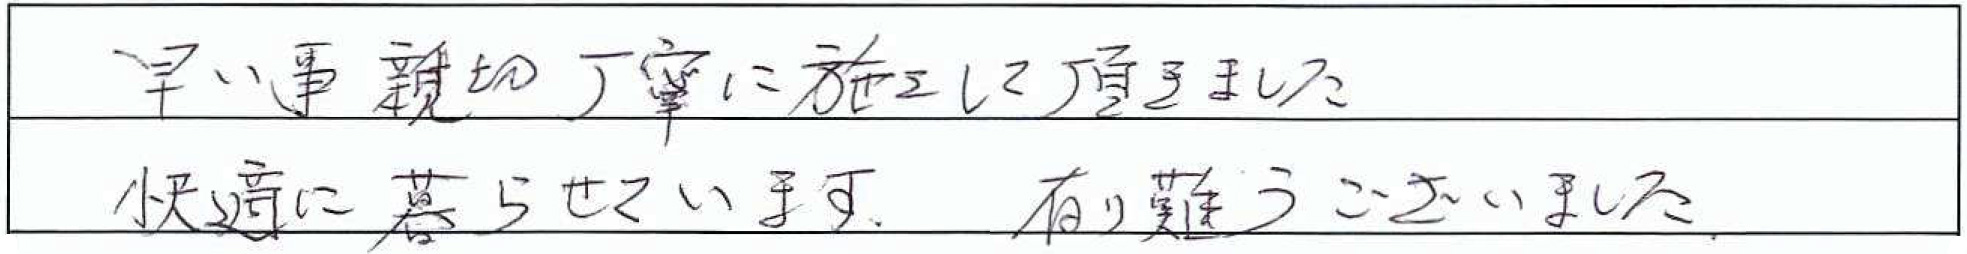 早い事親切丁寧に施工して頂きました
快適に暮らせています. 有り難うございました.